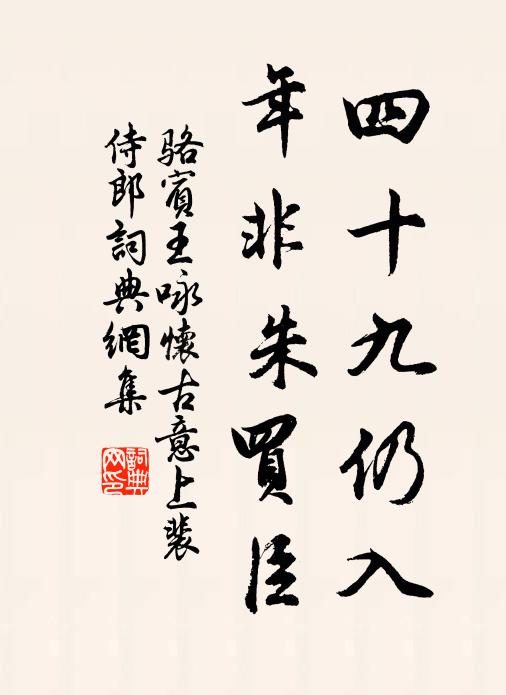 四十九仍入
年非朱買臣
駱賓王咏懷古意上裴
侍郎詞典網集
詞典网印